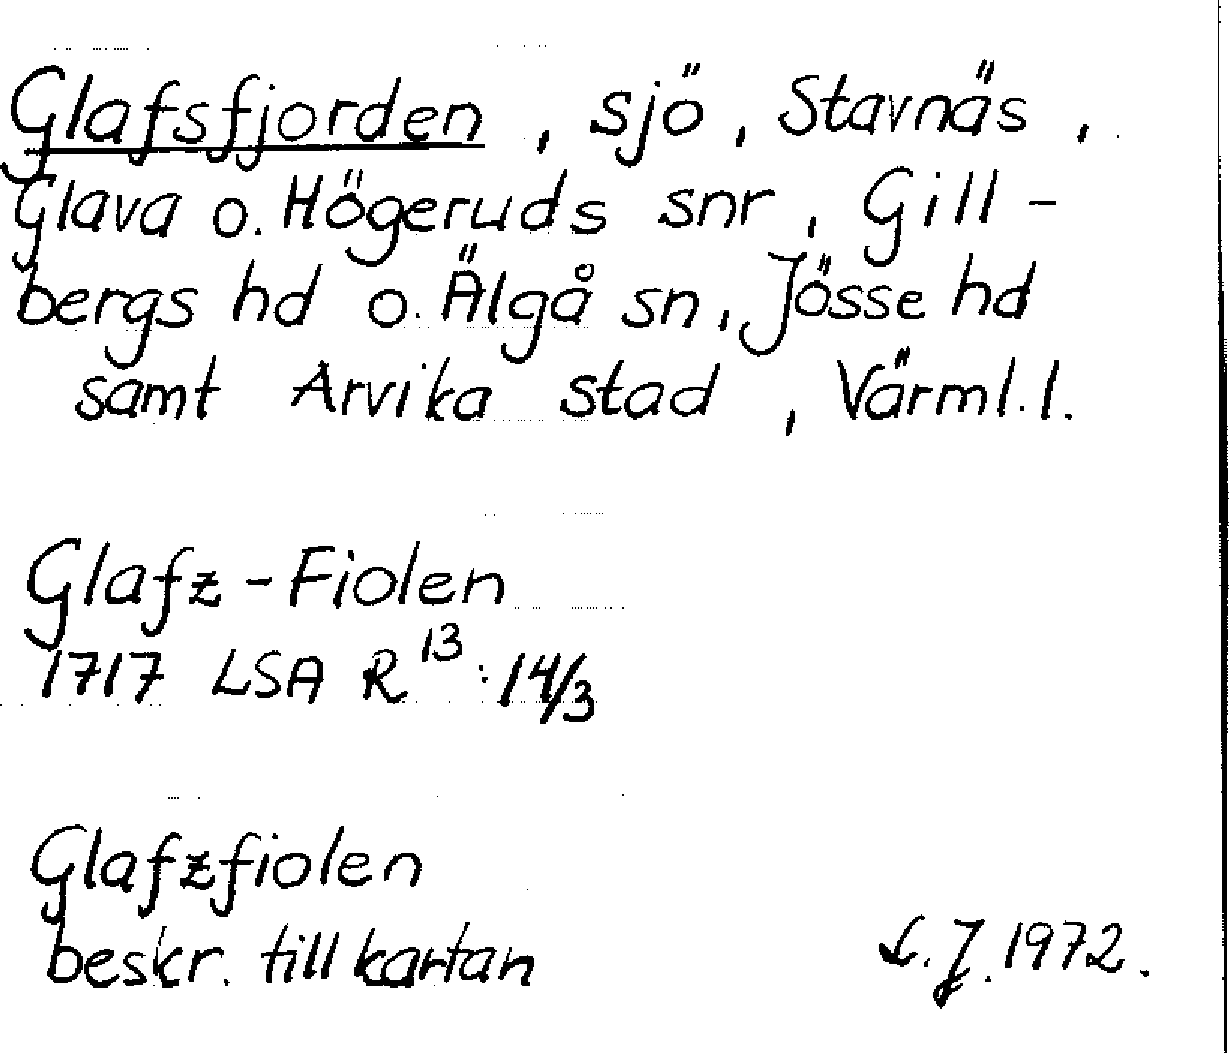 Glafsfjorden, sjö, Stavnäs,
Glava o. Högeruds snr, Gill-
bergs hd o. Älgå sn, Jösse hd
samt Arvika stad, Värml. l.
Glafz-Fiolen
1717 LSA R 13:14/3
Glafzfiolen
beskr. till kartan
L. J. 1972.